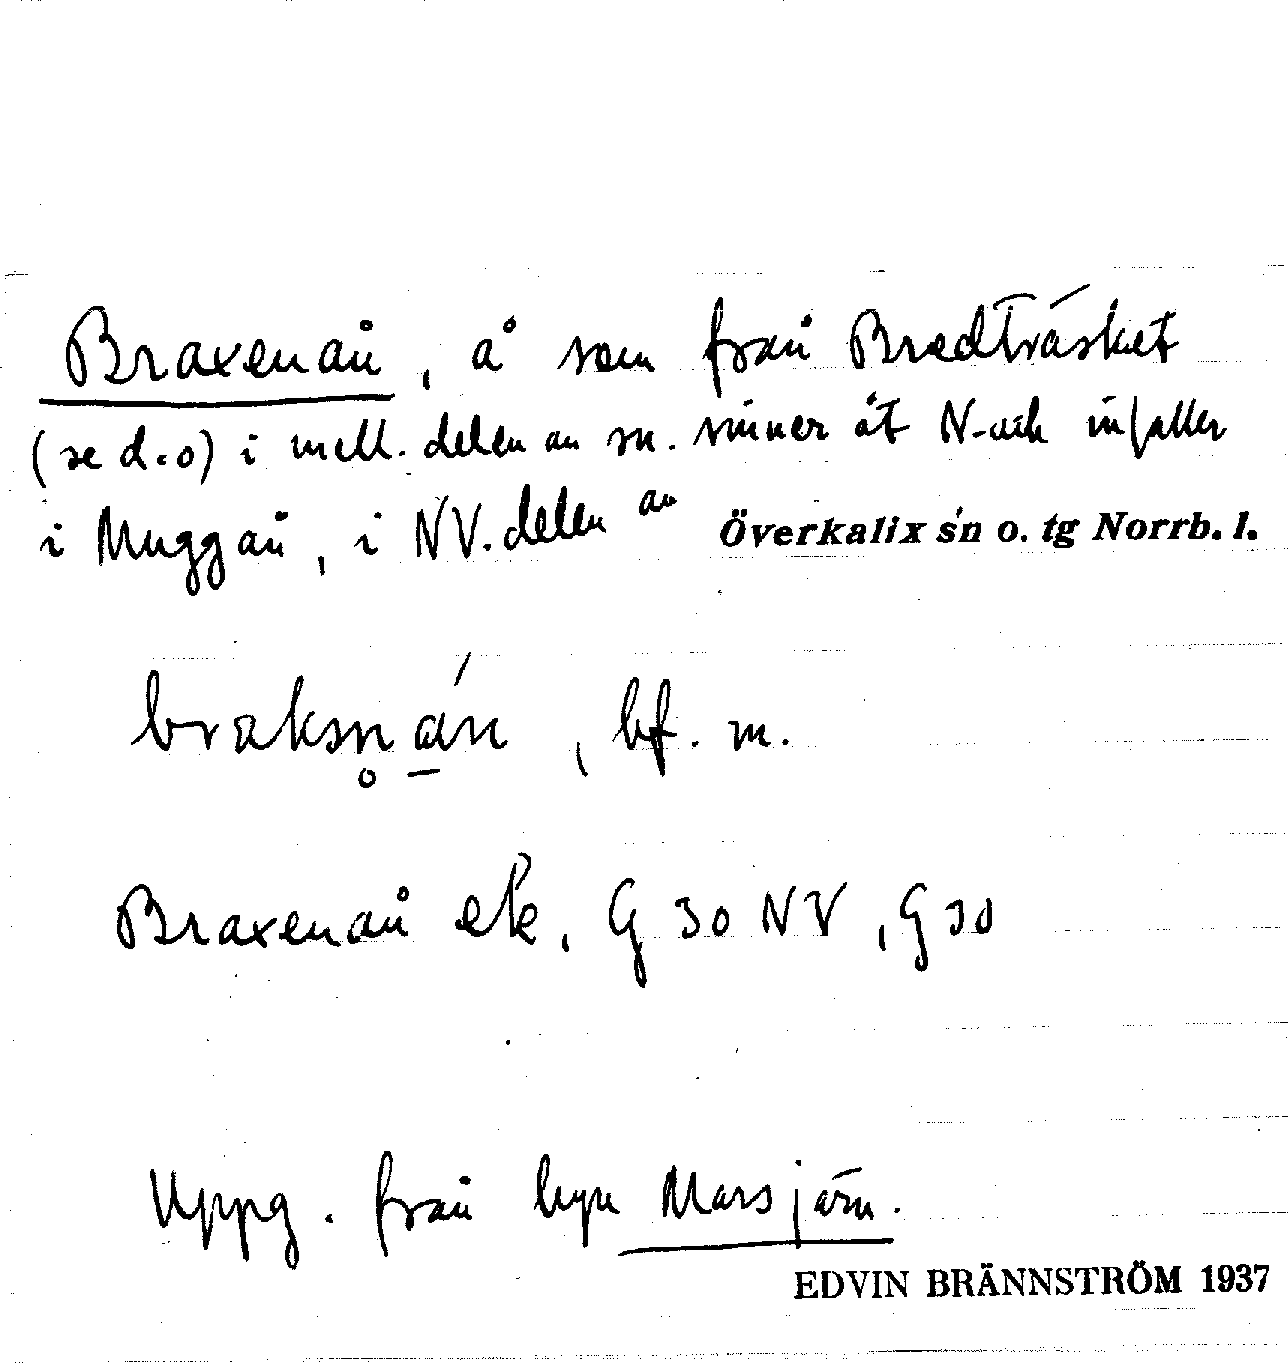 Braxenån, å som från Bredträsket
(se d.o) i mell. delen av sn. rinner åt N. och infaller
i Muggån, i NV. delen av Överkalix s:n o. tg Norrb. l.
braksn̥á̲n, bf. m.
Braxenån ek, G 30 NV, G 30
Uppg. från byn Marsjärn.
EDVIN BRÄNNSTRÖM 1937